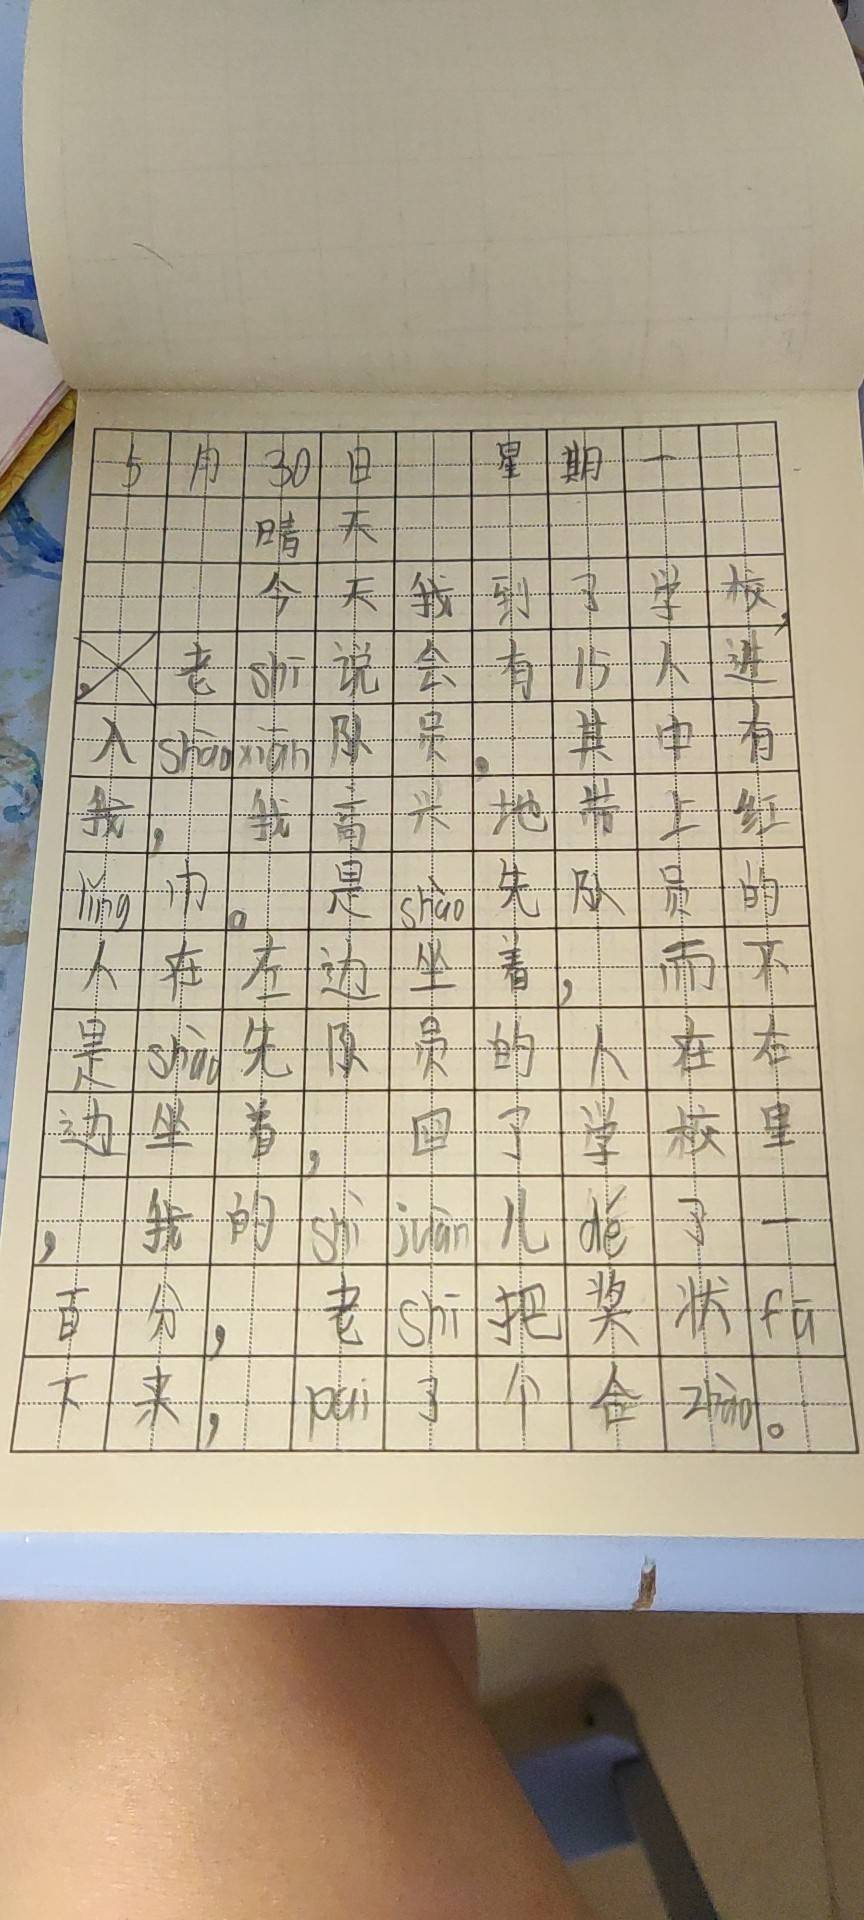 5月30日 星期一
晴天
今天我到了学校,
老shī说会有15人进
入shàoxiān队员。其中有
我，我高兴地带上红
lǐng巾。是shào先队员的
人在左边坐着，而不
是shào先队员的人在右
边坐着，回了学校里
，我的shì juàn儿dé了一
百分，老shī把奖状fā
下来，pāi了个合zhào。